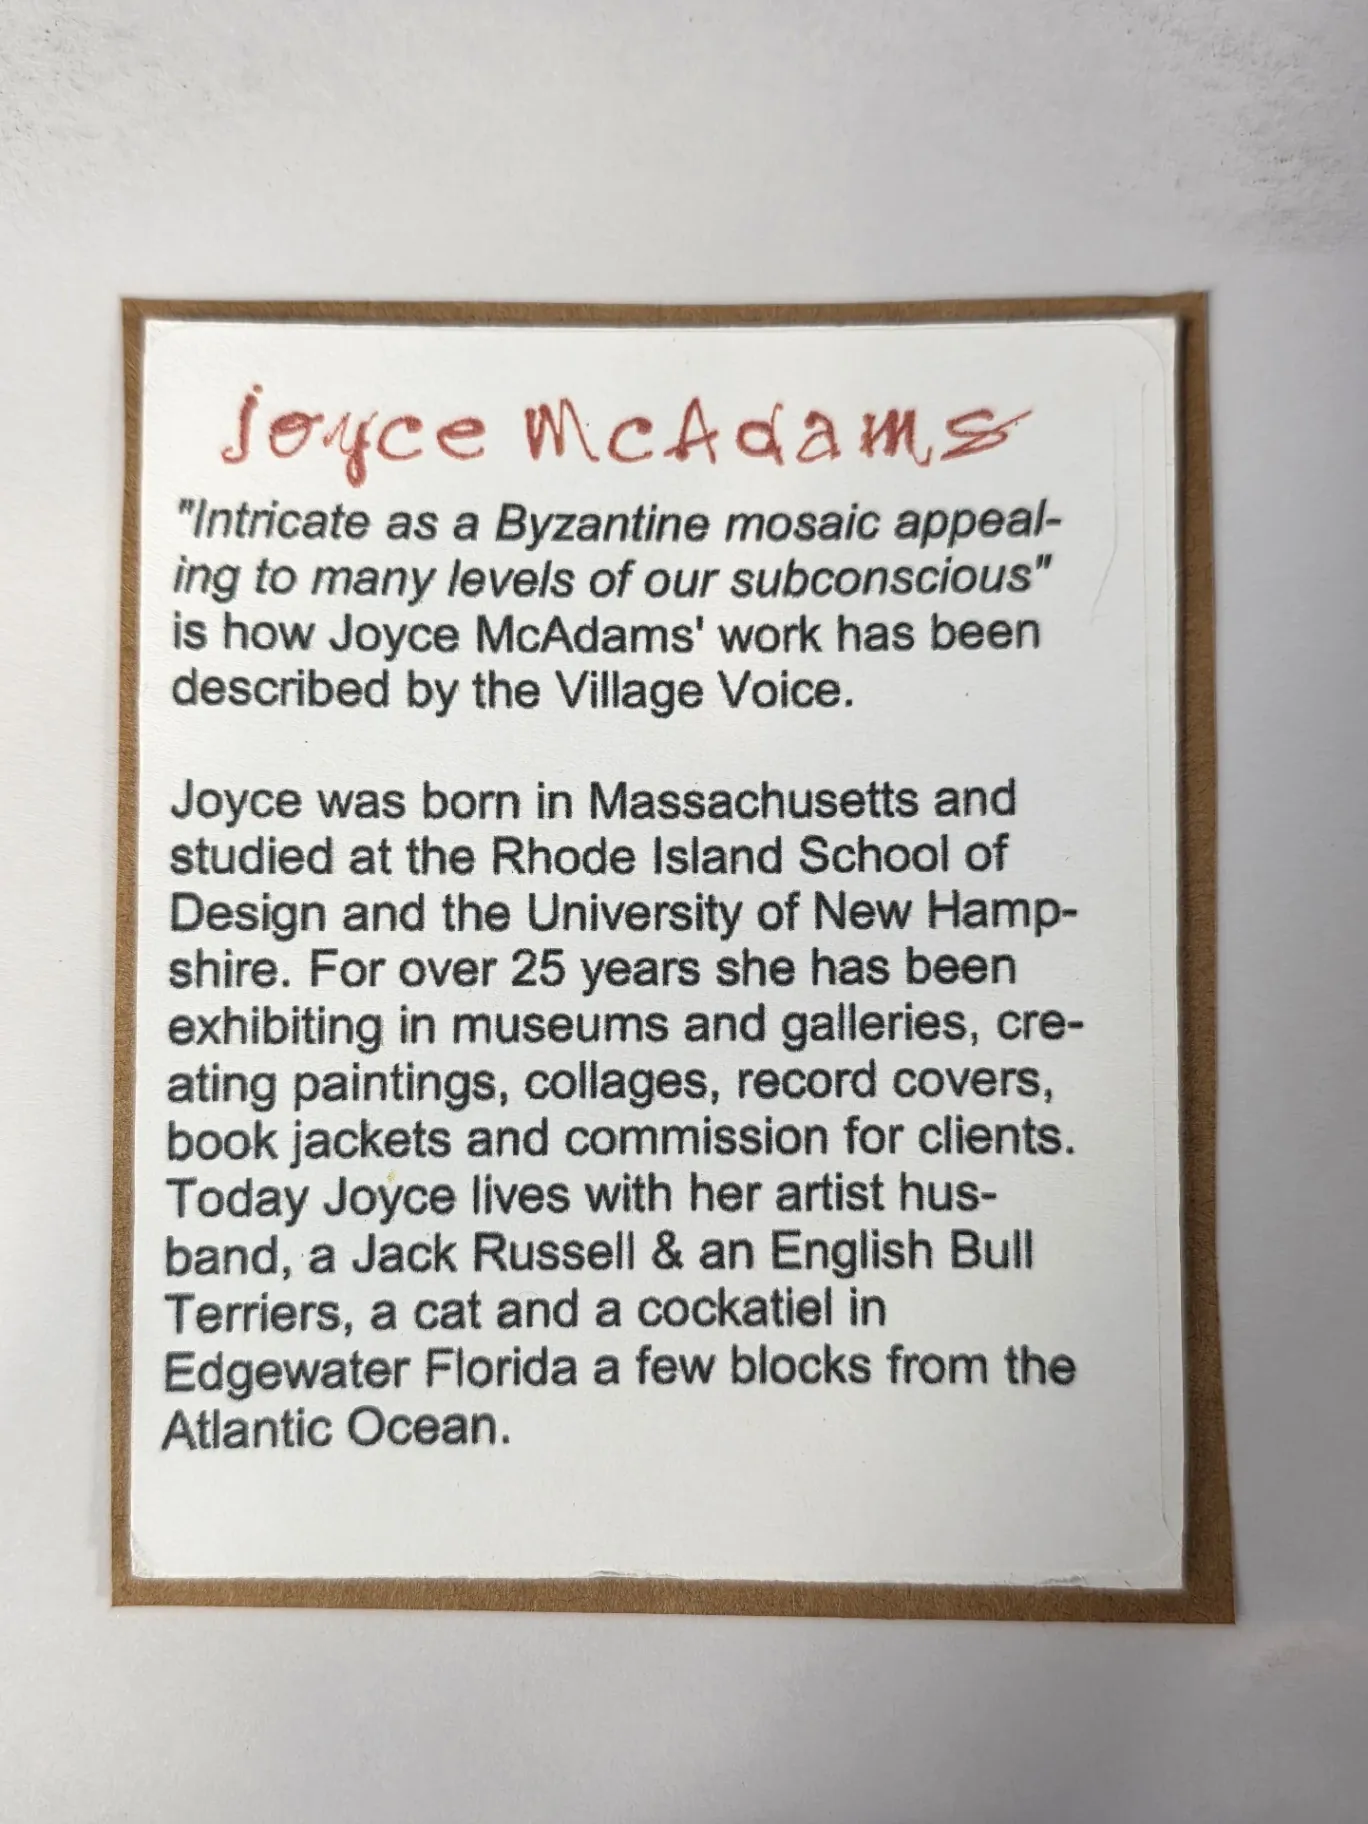 Joyce McAdams
"Intricate as a Byzantine mosaic appeal-
ing to many levels of our subconscious"
is how Joyce McAdams' work has been
described by the Village Voice.
Joyce was born in Massachusetts and
studied at the Rhode Island School of
Design and the University of New Hamp-
shire. For over 25 years she has been
exhibiting in museums and galleries, cre-
ating paintings, collages, record covers,
book jackets and commission for clients.
Today Joyce lives with her artist hus-
band, a Jack Russell & an English Bull
Terriers, a cat and a cockatiel in
Edgewater Florida a few blocks from the
Atlantic Ocean.